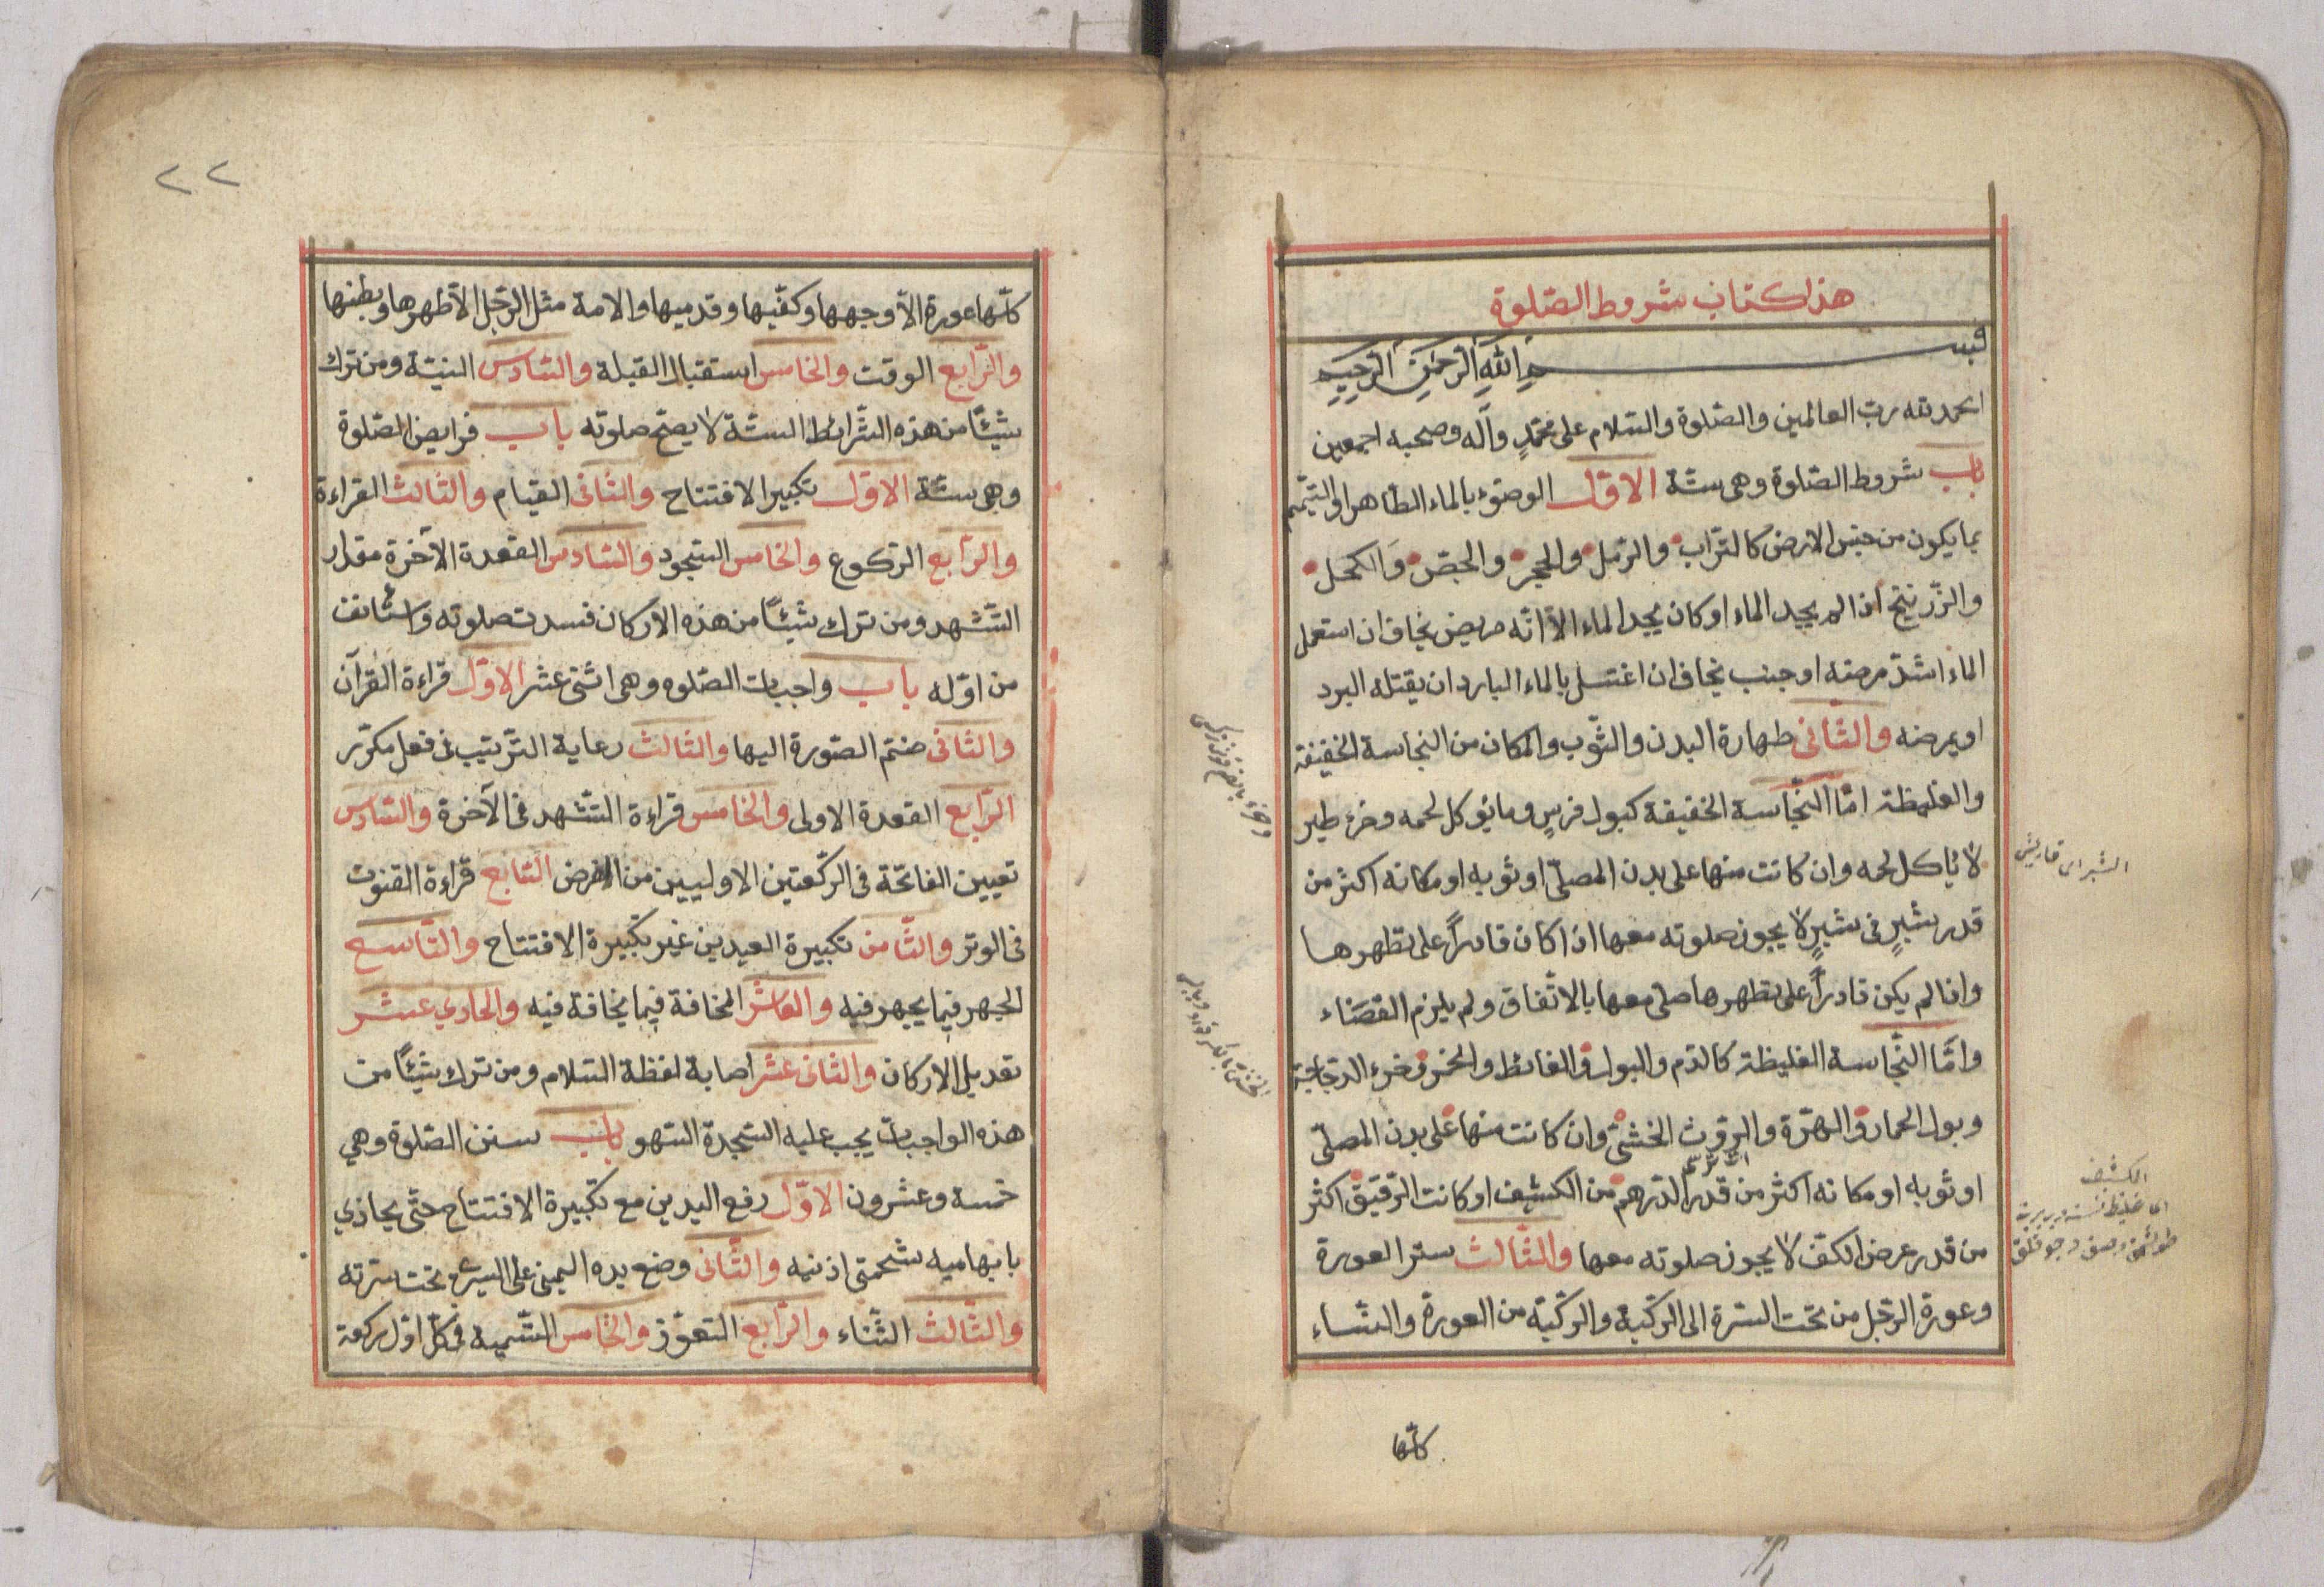 هذا كتاب شروط الصّلوة
بسم اللّٰه الرّحمٰن الرّحيم
الحمد للّه ربّ العالمين والصّلوة والسّلام على محمّدٍ وآله وصحبه اجمعين
باب شروط الصّلوة وهى ستّة الاوّل الوضوء بالماء الطّاهر او التّيمّم
بما يكون من جنس الارض كالتّراب والرّمل والحجر والجصّ والكحل
والزّرنيخ اذا لم يجد الماء او كان يجد الماء الّا انّه مريض يخاف ان استعمل
الماء اشدّ مرضه او جنب يخاف ان اغتسل بالماء البارد ان يقتله البرد
او يمرضه والثّانى طهارة البدن والثّوب والمكان من النجاسة الخفيفة
والغليظة امّا النّجاسة الخفيفة كبول فرسٍ وما يؤكل لحمه وخرء طير
لا ئاكل لحمه وان كانت منها على بدن المصلّى او ثوبه او مكانه اكثر من
قدر شبرٍ فى شبرٍ لا يجوز صلوته معها اذا كان قادراً على تطهرها
واذا لم يكن قادراً على تطهرها صلى معها بالاتّفاق ولم يلزم القضاء
وامّا النّجاسة الغليظة كالدّم والبول والغائط والخمر وخرء الدّجاجة
وبول الحمار والهرّة والرّوث الخنثى وان كانت منها على بدن المصلّى
او ثوبه او مكانه اكثر من قدر الدّرهم من الكشف او كانت الرّقيق اكثر
من قدر عرض الكفّ لا يجوز صلوته معها والثّالث ستر العورة
وعورة الرّجل من تحت السّرة الى الرّكبة والرّكبة من العورة والنّساء
كلّها
الشبر اى قاريش
الكشف
٢٢
كلّها عورة الّا وجهها وكفّيها وقدميها والامة مثل الرّجل الّا ظهرها وبطنها
والرّابع الوقت والخامس استقبال القبلة والسّادس النيّة ومن ترك
شيئًا من هذه الشّرائط الستّة لا يصحّ صلوته باب فرايض الصّلوة
وهى ستّة الاوّل تكبير الافتتاح والثانى القيام والثّالث القراءة
والرّابع الرّكوع والخامس السّجود والسّادس القعدة الآخرة مقدار
التّشهد ومن ترك شيئًا من هذه الاركان فسدت صلوته واستٔانف
من اوّله باب واجبات الصّلوه وهى اثنى عشر الاوّل قراءة القرآن
والثانى ضمّ الصّورة اليها والثالث رعاية التّرتيب فى فعل مكرّر
الرّابع القعدة الاولى والخامس قراءة التّشهد فى الآخرة والسّادس
تعيين الفاتحة فى الركّعتين الاوليين من الفرض السّابع قراءة القنوت
فى الوتر والثّامن تكبيرة العيدين غير تكبيرة الافتتاح والتّاسع
الجهر فيما يجهر فيه والعاشر المخافة فيما يخافة فيه والحادي عشر
تعديل الاركان والثّانى عشر اصابة لفظة السّلام ومن ترك شيئًا من
هذه الواجبات يجب عليه السّجدة السّهو باب سنن الصّلوة وهي
خمسة وعشرون الاوّل رفع اليدين مع تكبيرة الافتتاح حتّى يحاذي
بابهاميه شحمتى اذنيه والثّانى وضع يده اليمنى على اليسرى تحت سرّته
والثّالث الثّناء والرّابع التّعوّذ والخامس التّسمية فى كلّ اوّل ركعة